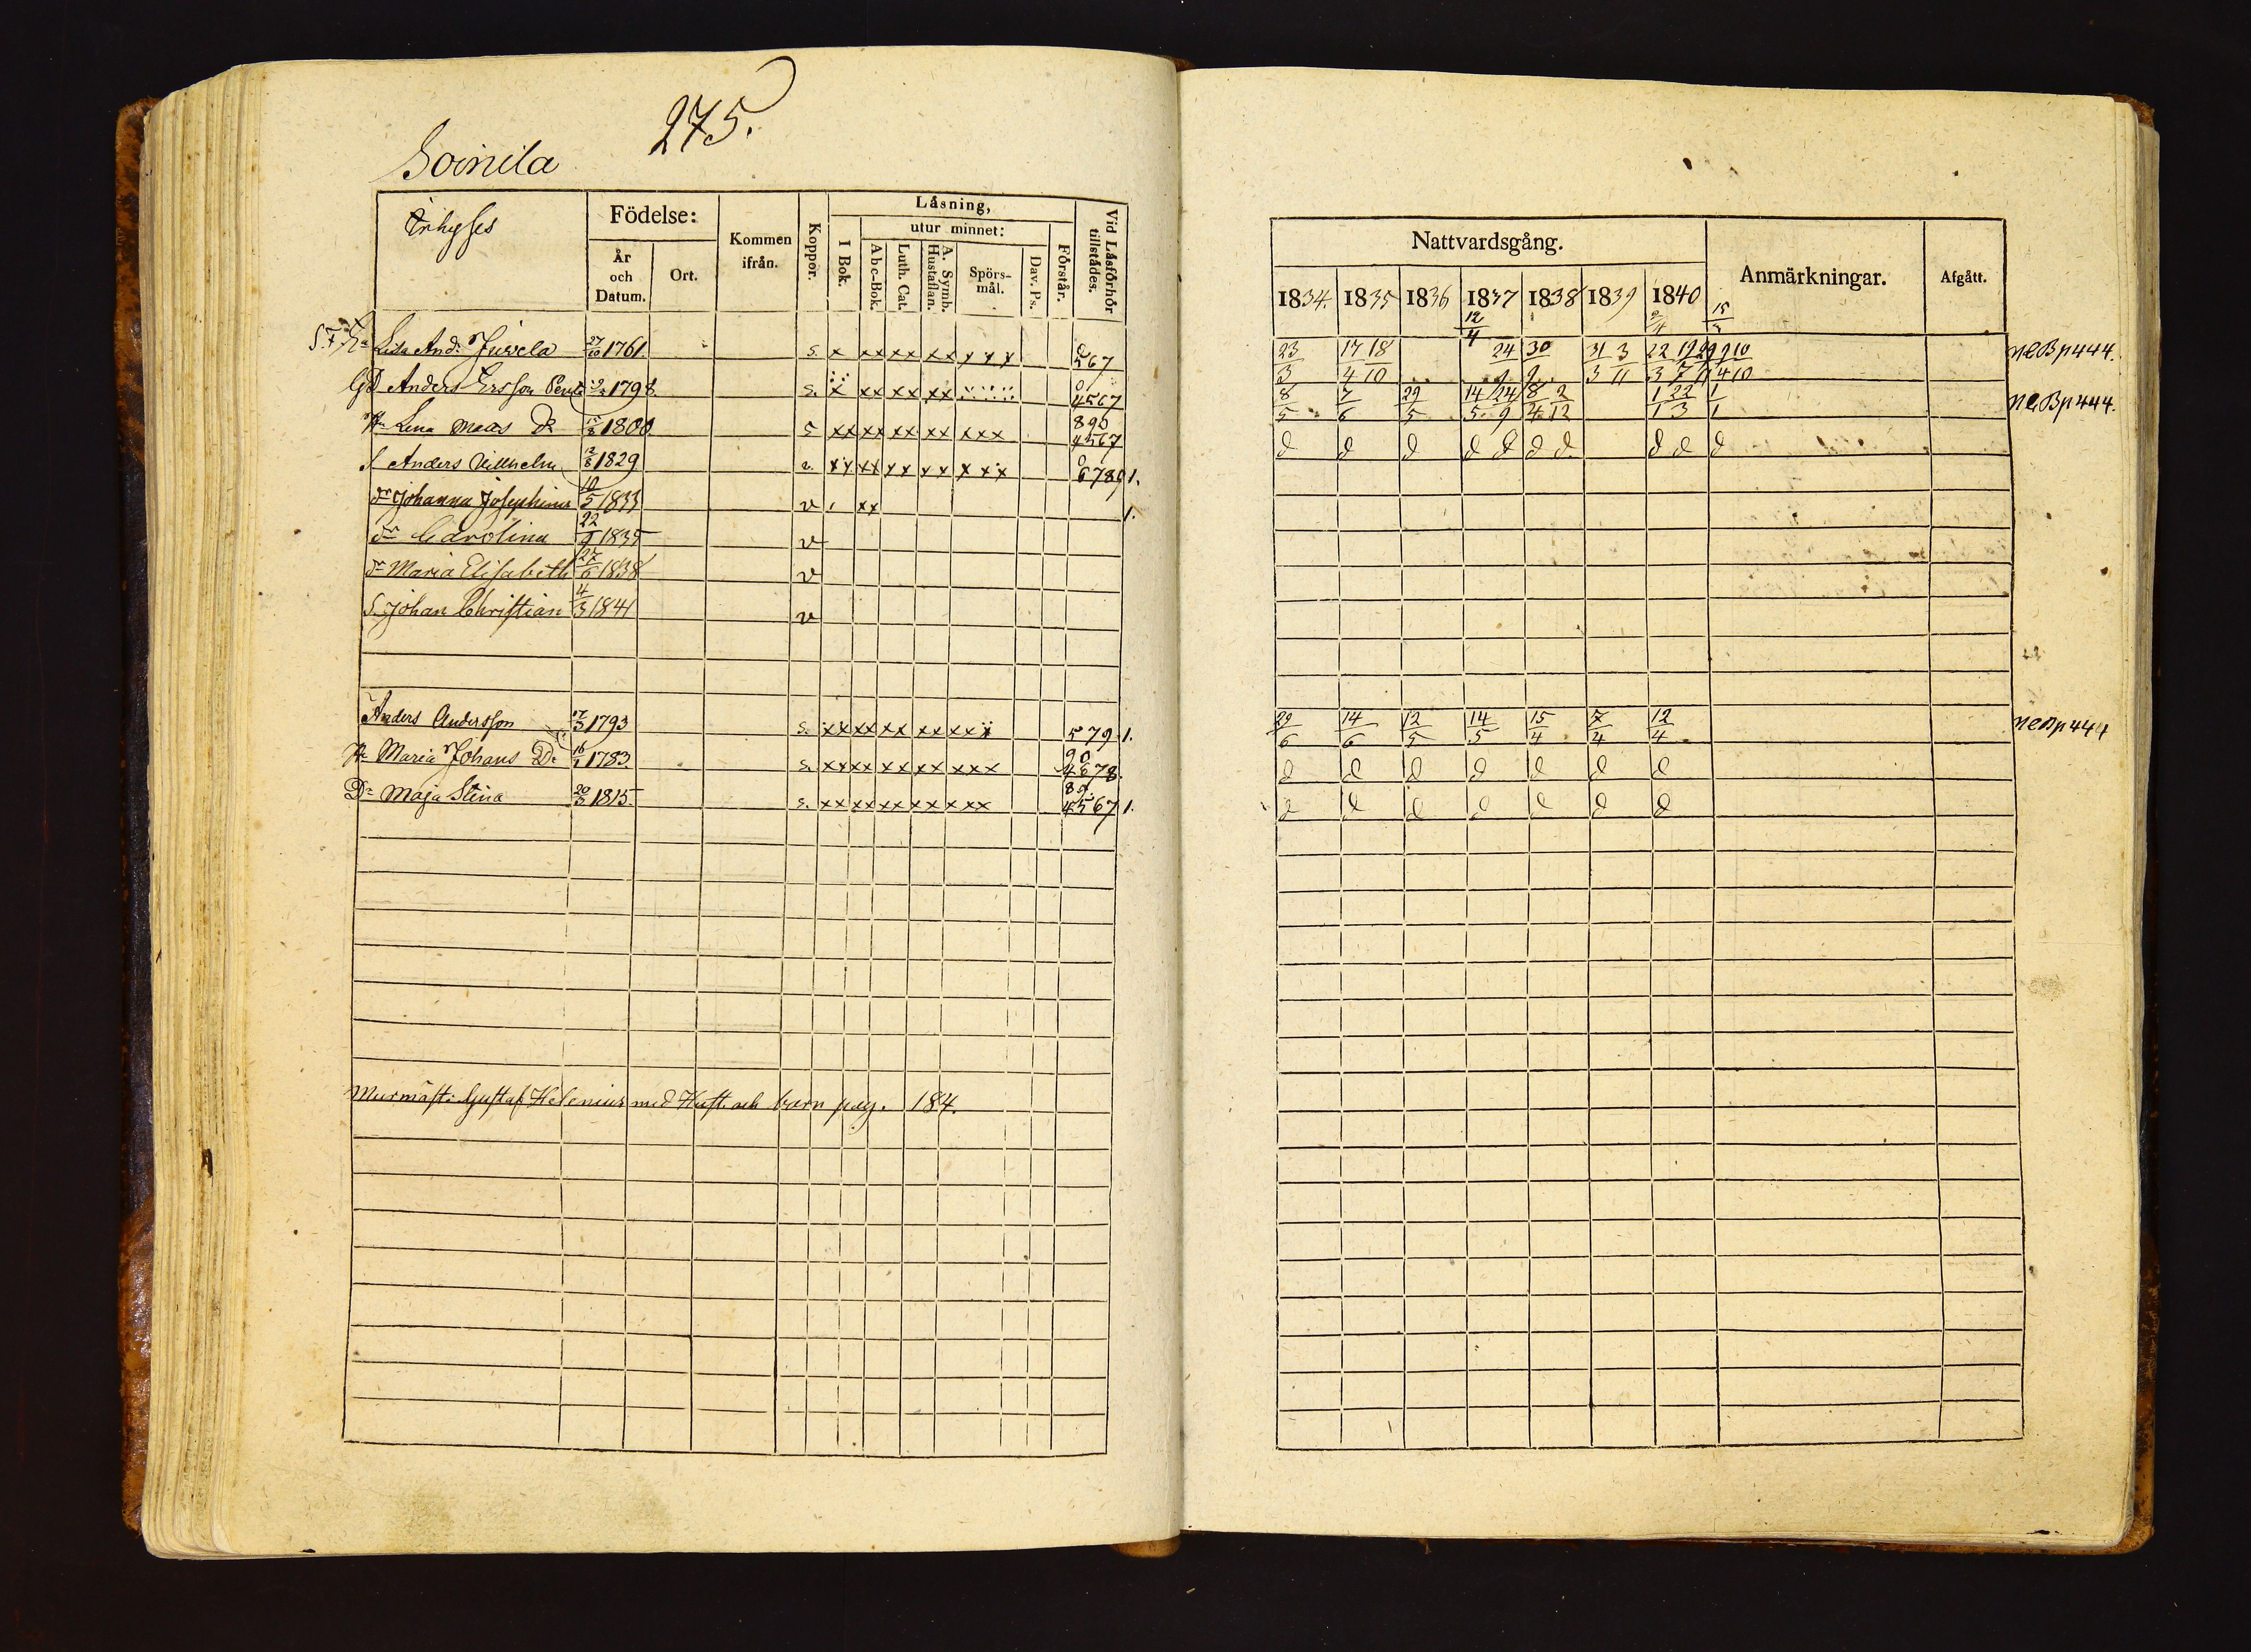 275.
Soinila
Inhyses
Födelse:
År och Datum.
Ort.
Kommen ifrån.
Koppor.
Läsning,
I Bok.
utur minnet:
Abc-Bok.
Luth. Cat.
A. Symb. Hustaflan.
Spörs-mål.
Dav. Ps.
Förstår.
Vid Läsförhör tillstädes.
Nattvardsgång.
1834. 1835 1836 1837 1838 1839 1840
Anmärkningar.
Afgått.
Lisa And: Juvela 27/10 1761. s. x xx xx xx x x x 567 23/3 17/4 18/10 12/4 24/9 30/9 31/3 3/11 NCB p 444.
GD Anders Ersson 1798. s. x xx xx xx 4567 8/5 7/6 29/5 14/5 24/9 8/4 2/12 1/1 22/3 1/1 NCB p 444.
H: Lena Mats D: 1800. s xx xx xx xx xxx 890 4567 d d d d d d d d d d
S Anders Villhelm 12/8 1829 v. xx xx xx xx xxx 67891.
Dr Johanna Josephina 10/5 1833 v xx 1.
Dr Carolina 22/9 1835 v
Dr Maria Elisabeth 27/6 1838 v
S. Johan Christian 4/3 1841 v
Anders Andersson 17/3 1793 s. xx xx xx xx xxx 579.1. 29/6 14/6 12/5 14/5 15/4 7/4 12/4 NCB p 444
H: Maria Johans D: 16/1 1783. s. xx xx xx xx xxx 90 4678. d d d d d d d
D: Maja Stina 20/3 1815. s. xx xx xx xx xxx 4567 1. d d d d d d d
Murmäst: Gustaf Helenius med Hust. och barn pag. 184.